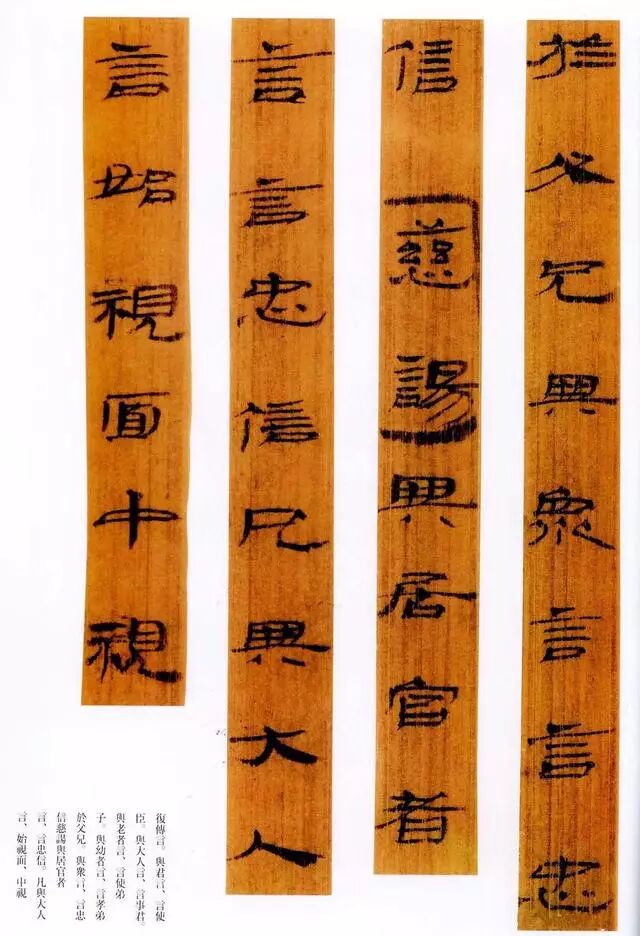 於父兄與眾言言忠
信慈諹與居官者
言言忠信凡與大人
言始視面中視
復傳言。與君言、言使
臣。與大人言、言事君。
與老者言、言使弟
子。與幼者言、言孝弟
於父兄。與衆言、言忠
信慈諹與居官者
言、言忠信。凡與大人
言、始視面、中視